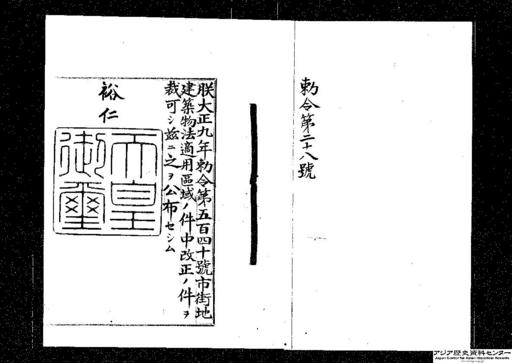 勅令第二十八號
朕大正九年勅令第五百四十號市街地
建築物法適用區域ノ件中改正ノ件ヲ
裁可シ茲ニ之ヲ公布セシム
裕仁
天皇
御璽
アジア歴史資料センター
Japan Center for Asian Historical Records